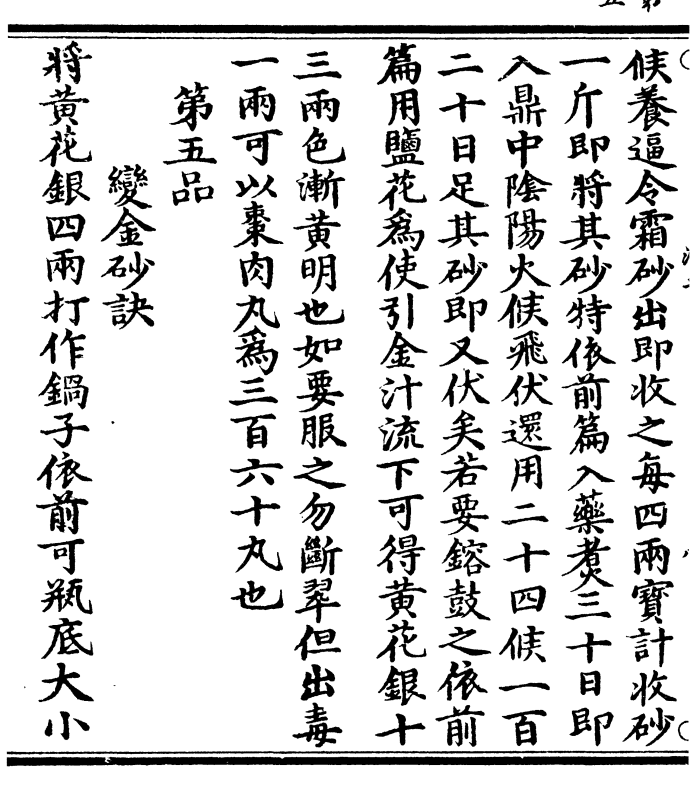 候養逼令霜砂出即收之每四兩寶計收砂
一斤即將其砂特依前篇入藥煑三十日即
入鼎中隂陽火候飛伏還用二十四候一百
二十日足其砂即又伏矣若要鎔鼓之依前
篇用鹽花爲使引金汁流下可得黄花銀十
三兩色漸黄明也如要服之勿斷翠但出毒
一兩可以棗肉丸爲三百六十丸也
第五品
變金砂訣
將黄花銀四兩打作鍋子依前可瓶底大小